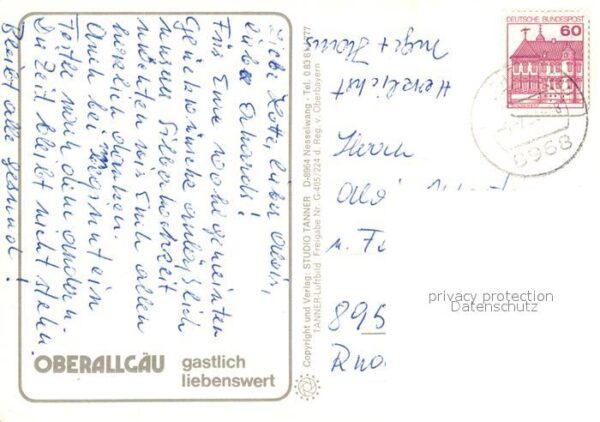 Liebe Lotte, lieber Alois,
lieber Eduard!
Für Eure wohlgemeinten
Glückwünsche anläßlich
unserer Silberhochzeit
möchten wir Euch allen
herzlich danken.
Auch bei ein
Teller nach dem andern.
Die Zeit bleibt nicht stehn.
Bleibt alle gesund!
OBERALLGÄU gastlich
liebenswert
Copyright und Verlag: STUDIO TANNER D-8964 Nesselwang - Tel. 0 83 61/
TANNER-Luftbild Freigabe Nr. G-405/224 d. Reg. v. Oberbayern
Herzlichst
Inge + Hans
DEUTSCHE BUNDESPOST
60
8968
Herrn
Alois
u. Fa
895
privacy protection
Datenschutz